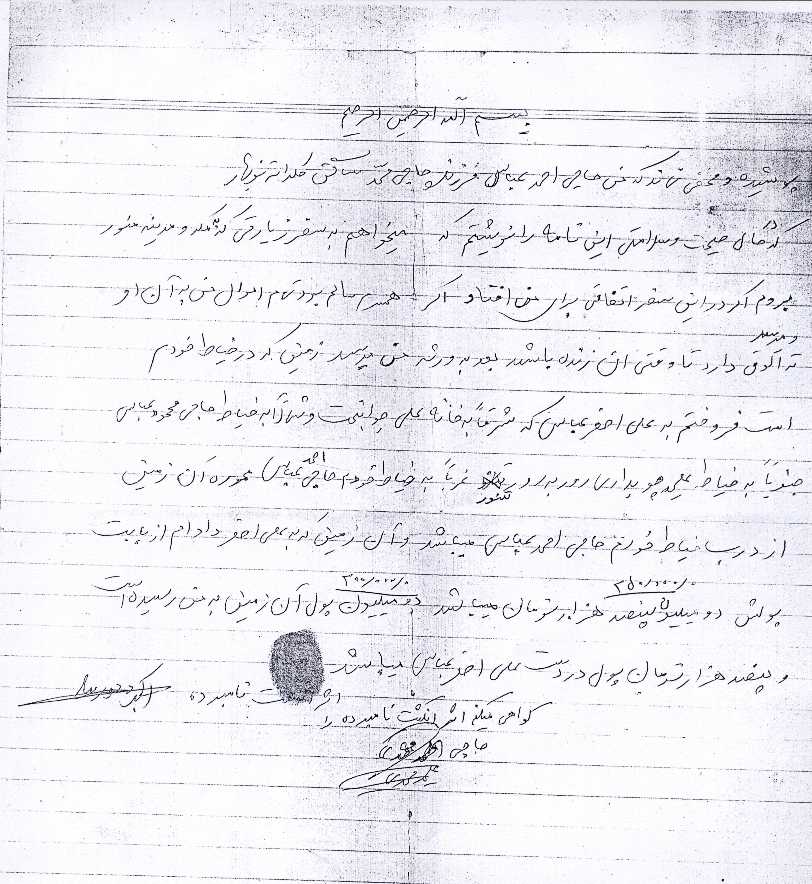 بسم الله الرحمن الرحیم
پوشیده و مخفی نماند که من حاجی احمد عباسی فرزند حاجی محمد ساکن نوبهار
که در کمال صحت و سلامتی این نامه را نوشتم که میخواهم به سفر زیارتی که مکه و مدینه منور
بروم اگر در این سفر اتفاقی برای من افتاد و اگر همسرم سالم بود تمام اموال من به آن او
و میرسد
دارد تا وقتی ان زنده باشد بعد به ورثه من میرسد زمینی که در خیاط خودم
است فروختم به علی اصغر عباسی که شرقاً به خانه علی و شمالاً به خیاط حاجی محمود عباسی
جنوبیاً به خیاط علی رور به رور تنور غرباً به خیاط خودم حاجی احمد عباسی آن زمین
از درب خیاط خودم حاجی احمد عباسی میباشد و آن زمین که به علی اصغر دادام از بابت
پولش دو میلیون پنصد هزار تومان میباشد دو میلیون پول آن زمین به من رسیده است
و پنصد هزار تومان پول در دست علی اصغر عباسی میباشد
اثر انگشت نامبرده
گواهی میکنم اثر انگشت نامبرده را
حاجی